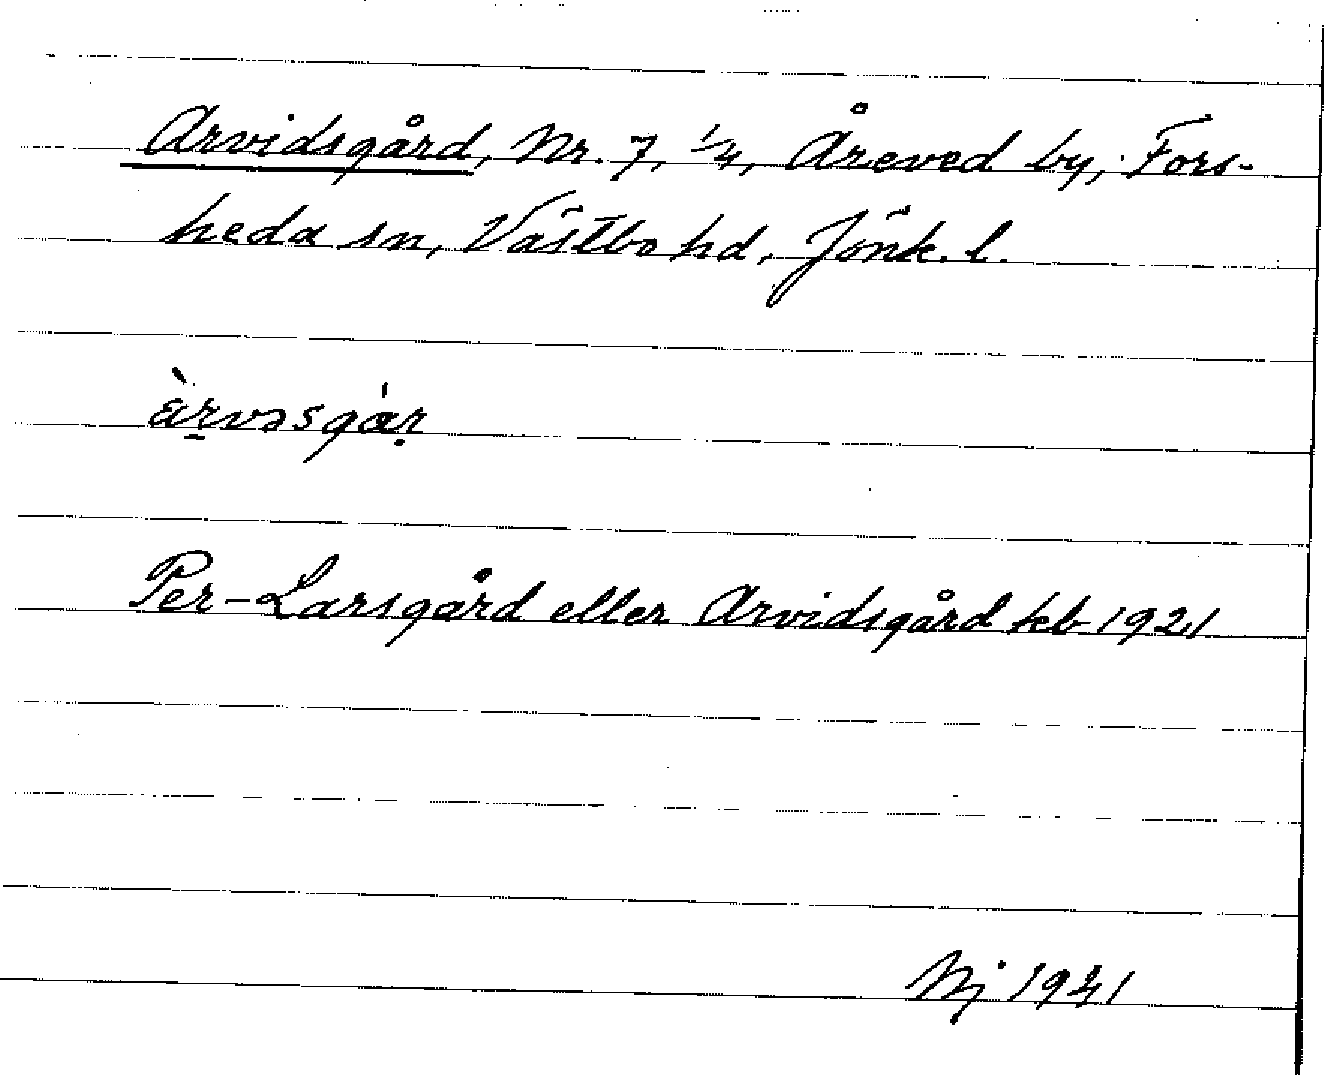 Arvidsgård, Nr. 7, 1/4, Åreved by, Fors-
heda sn, Västbo hd, Jönk. l.
àrvəsgár
Per-Larsgård eller Arvidsgård kb 1921
Nj 1941